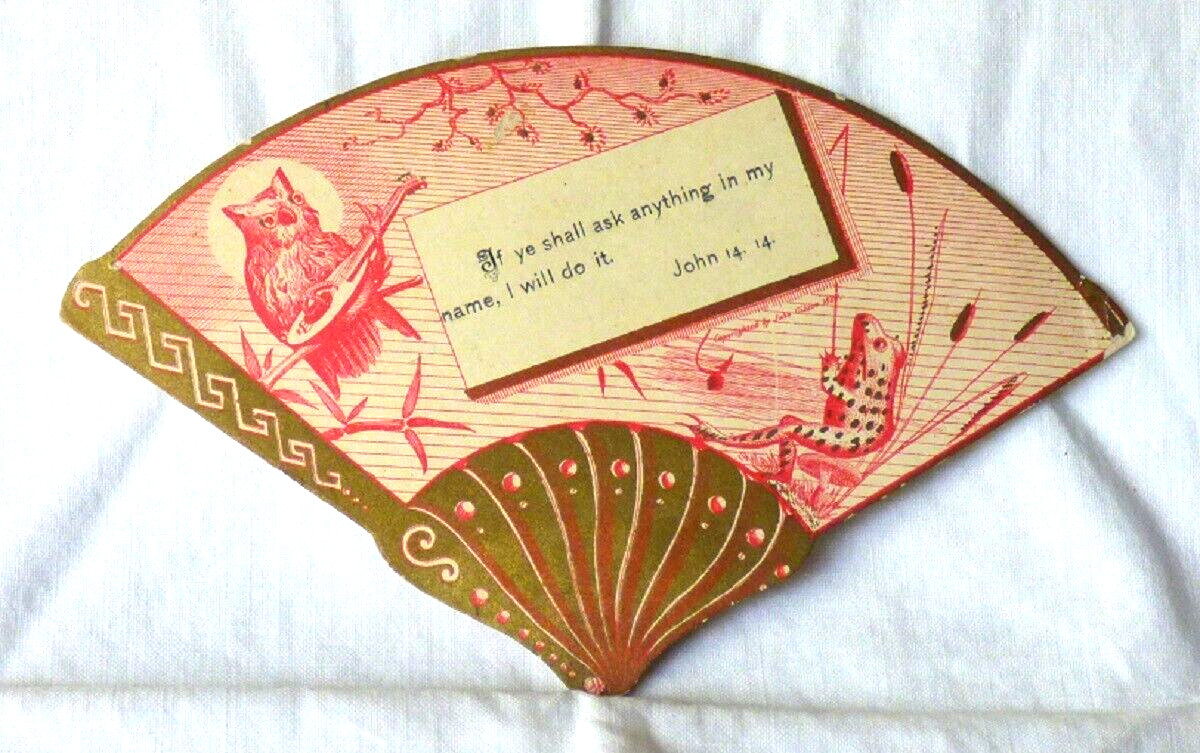 If ye shall ask anything in my
name, I will do it. John 14. 14.
Copyrighted by John Gibson